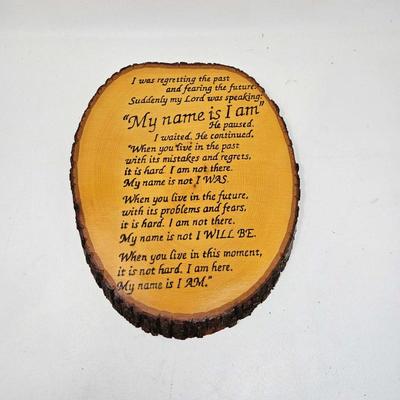 I was regretting the past
and fearing the future.
Suddenly my Lord was speaking:
"My name is I am"
He paused.
I waited. He continued,
"When you live in the past
with its mistakes and regrets,
it is hard. I am not there.
My name is not I WAS.
When you live in the future,
with its problems and fears,
it is hard. I am not there.
My name is not I WILL BE.
When you live in this moment,
it is not hard. I am here.
My name is I AM."